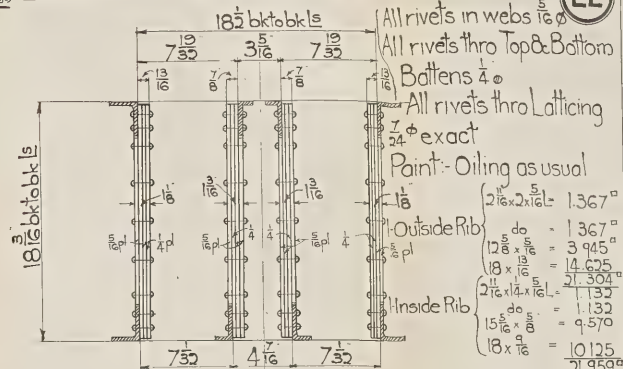 LL
18 1/2 bk to bk ls
7 19/32 3 5/16 7 19/32
13/16 7/8 7/8 13/16
18 3/16 bk to bk ls
1 1/8 1 3/16 1 3/16 1 1/8
5/16 pl 1/4 pl 5/16 pl 1/4 1/4 5/16 pl 1/4 5/16 pl
7 1/32 4 7/16 7 1/32
All rivets in webs 5/16 ϕ
All rivets thro Top & Bottom
Battens 1/4 ϕ
All rivets thro Latticing
7/24 ϕ exact
Paint:- Oiling as usual
1-Outside Rib
2 11/16 x 2 x 5/16 L = 1.367 □
do = 1.367
12 5/8 x 5/16 = 3.945 □
18 x 13/16 = 14.625
21.304 □
1-Inside Rib
2 11/16 x 1 1/4 x 5/16 L = 1.132
do = 1.132
15 5/16 x 5/8 = 9.570
18 x 9/16 = 10.125
21.959 □